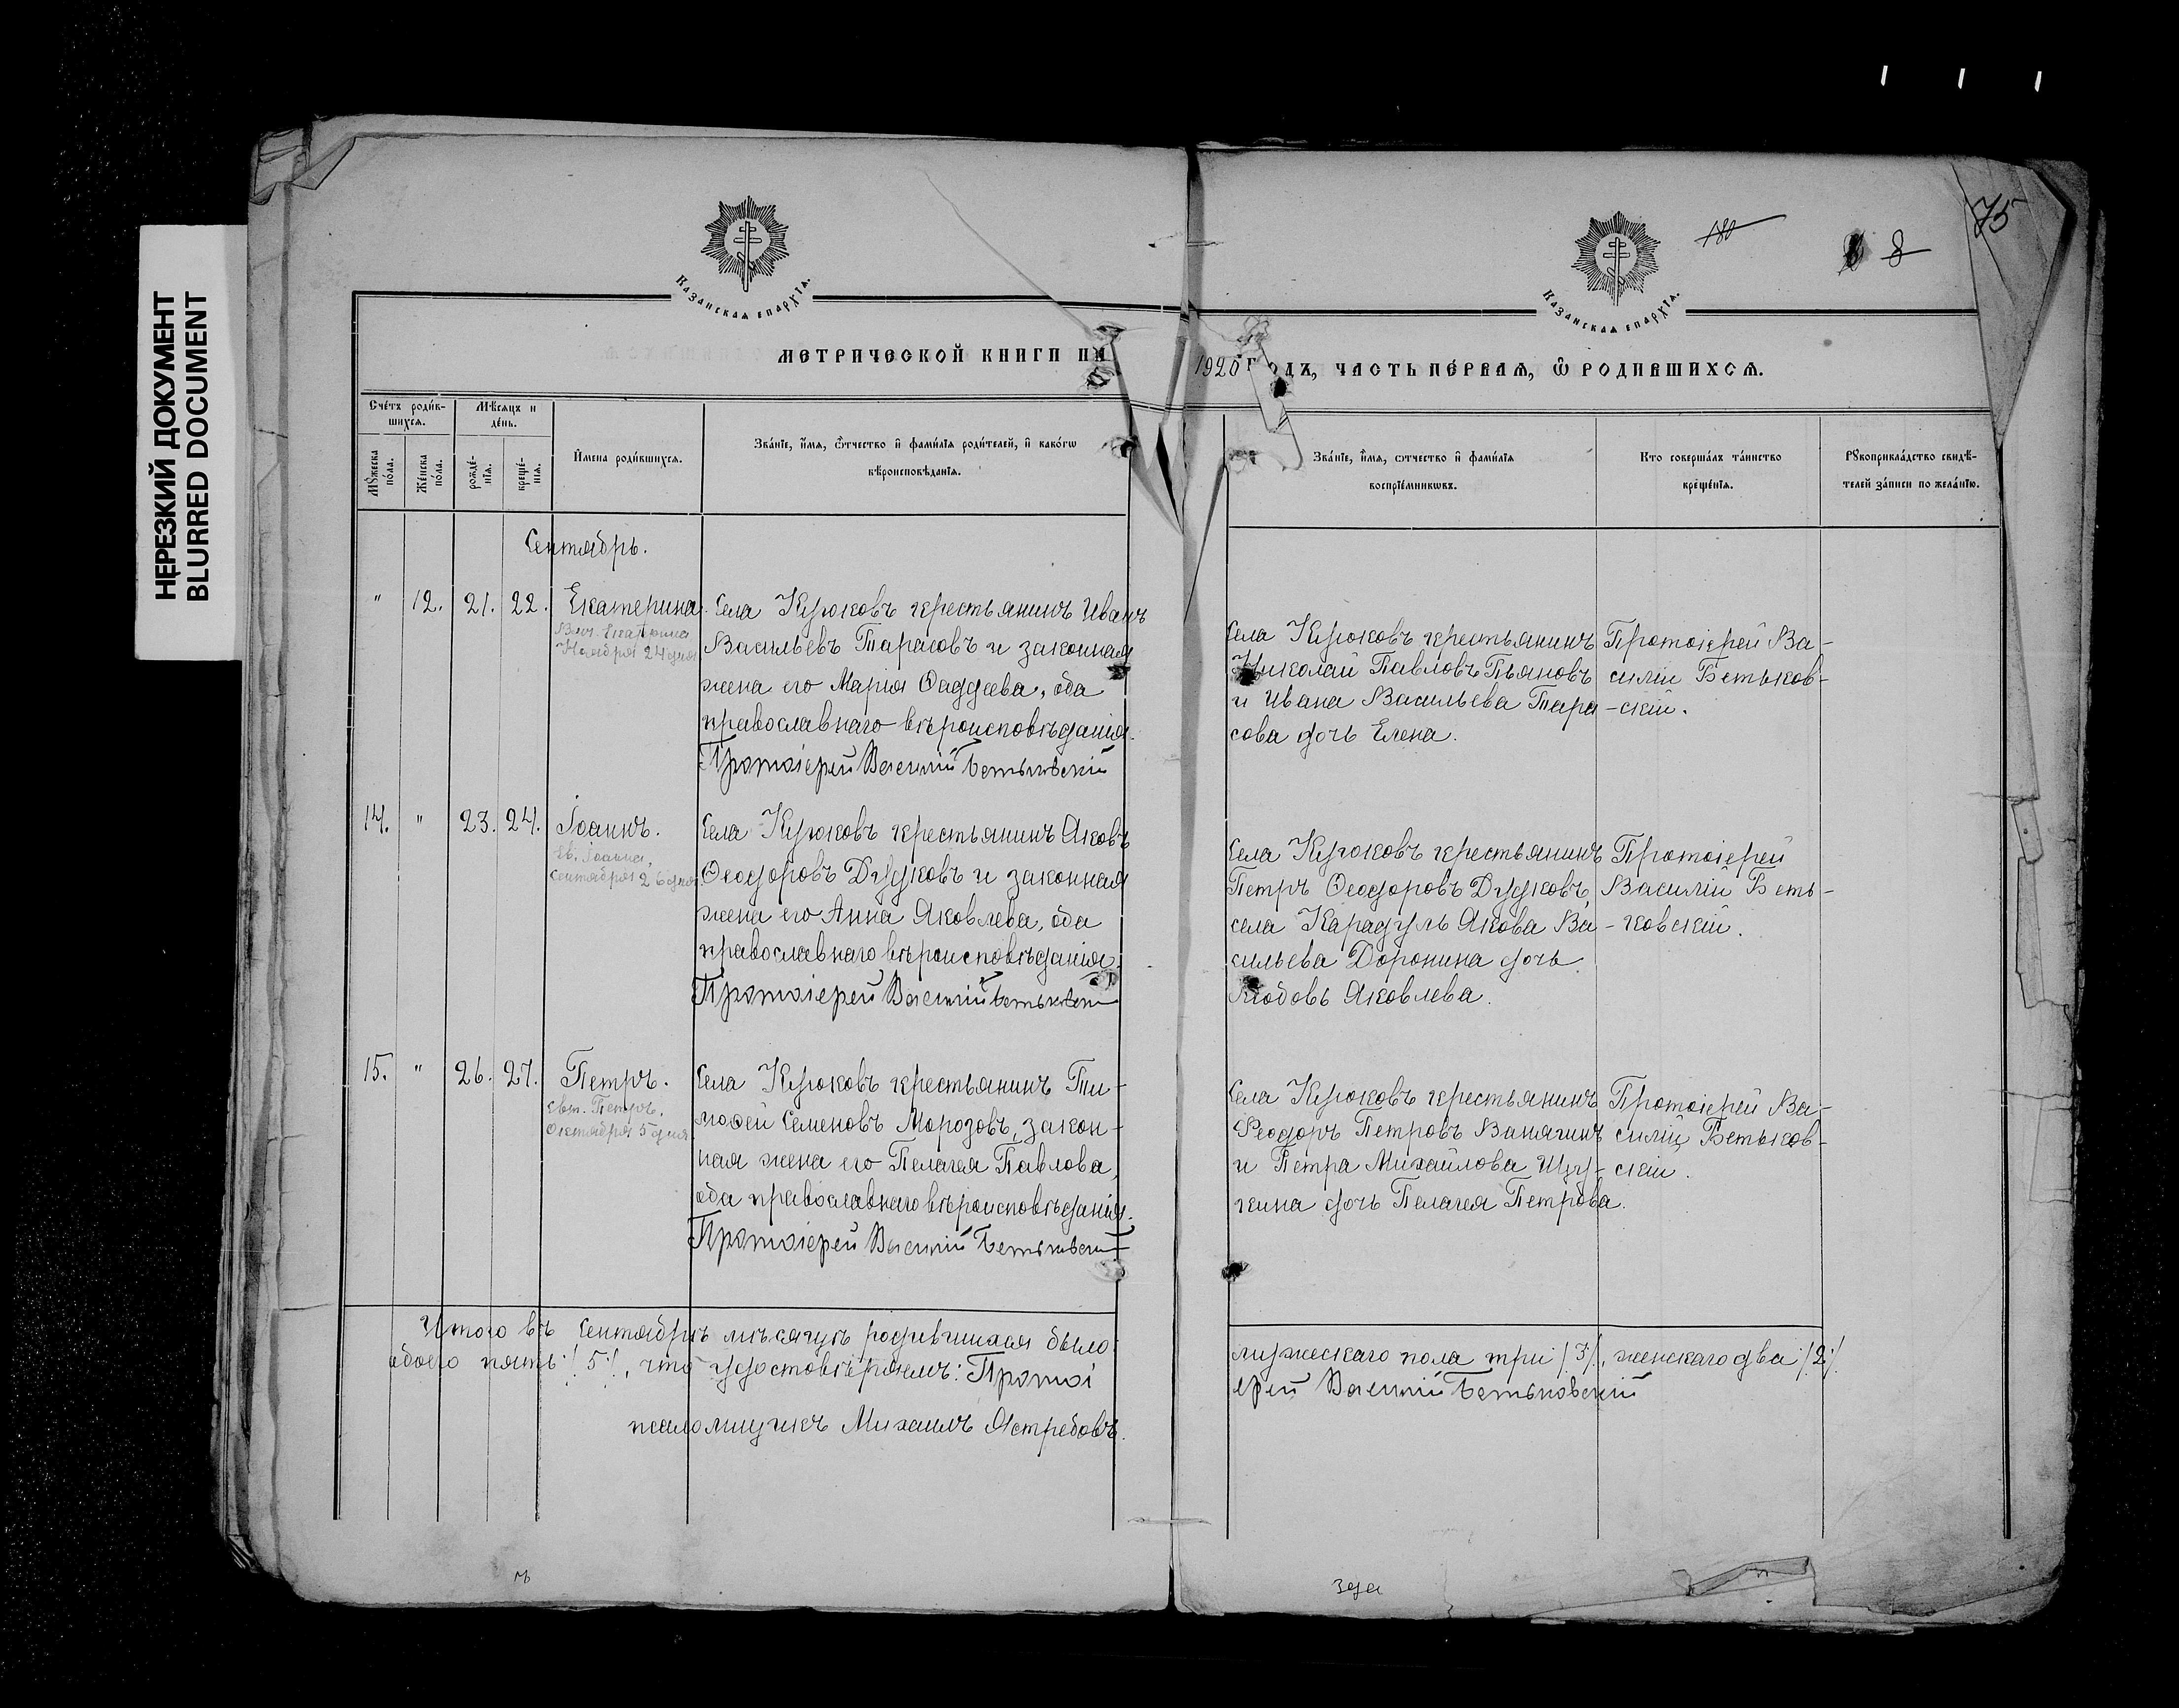 НЕРЕЗКИЙ ДОКУМЕНТ
BLURRED DOCUMENT
Казанская епархія.
Казанская епархія.
180
8
75
МЕТРИЧЕСКОЙ КНИГИ НА 1920 ГОДЪ, ЧАСТЬ ПЕРВАЯ, Ѡ РОДИВШИХСЯ.
Счетъ родив-
шихся.
Мѣсяцъ и
день.
Мужеска
пола.
Женска
пола.
рожде-
нія.
креще-
нія.
Имена родившихся.
Званіе, имя, отчество и фамилія родителей, и какогѡ
вѣроисповѣданія.
Званіе, имя, отчество и фамилія
воспріемниковъ.
Кто совершалъ таинство
крещенія.
Рукоприкладство свидѣ-
телей записи по желанію.
Сентябрь.
" 12. 21. 22. Екатерина.
Вмч. Екатерина
Ноября 24 дня
Села Кирюковъ крестьянинъ Иванъ
Васильевъ Тарасовъ и законная
жена его Марія Ѳаддеева, оба
православнаго вѣроисповѣданія.
Протоіерей Василій Бетьковскій
Села Кирюковъ крестьянинъ
Николай Павловъ Пьяновъ
и Ивана Васильева Тара-
сова дочь Елена.
Протоіерей Ва-
силій Бетьков-
скій.
14. " 23. 24. Іоаннъ.
Ев. Іоанна,
Сентября 26 дня
Села Кирюковъ крестьянинъ Яковъ
Ѳеодоровъ Дудковъ и законная
жена его Анна Яковлева, оба
православнаго вѣроисповѣданія.
Протоіерей Василій Бетьковскій
Села Кирюковъ крестьянинъ
Петръ Ѳеодоровъ Дудковъ,
села Карадуль Якова Ва-
сильева Доронина дочь
Любовь Яковлева.
Протоіерей
Василій Беть-
ковскій.
15. " 26. 27. Петръ.
Свт. Петръ,
Октября 5 дня
Села Кирюковъ крестьянинъ Ти-
моѳей Семеновъ Морозовъ, закон-
ная жена его Пелагея Павлова,
оба православнаго вѣроисповѣданія.
Протоіерей Василій Бетьковскій
Села Кирюковъ крестьянинъ
Феодоръ Петровъ Ванягинъ
и Петра Михайлова Щу-
кина дочь Пелагея Петрова.
Протоіерей Ва-
силій Бетьков-
скій.
Итого въ Сентябрѣ мѣсяцѣ родившихся было: мужескаго пола три /3/, женскаго два /2/
обоего пять /5/, что удостовѣряемъ: Протоіерей Василій Бетьковскій
псаломщикъ Михаилъ Ястребовъ.